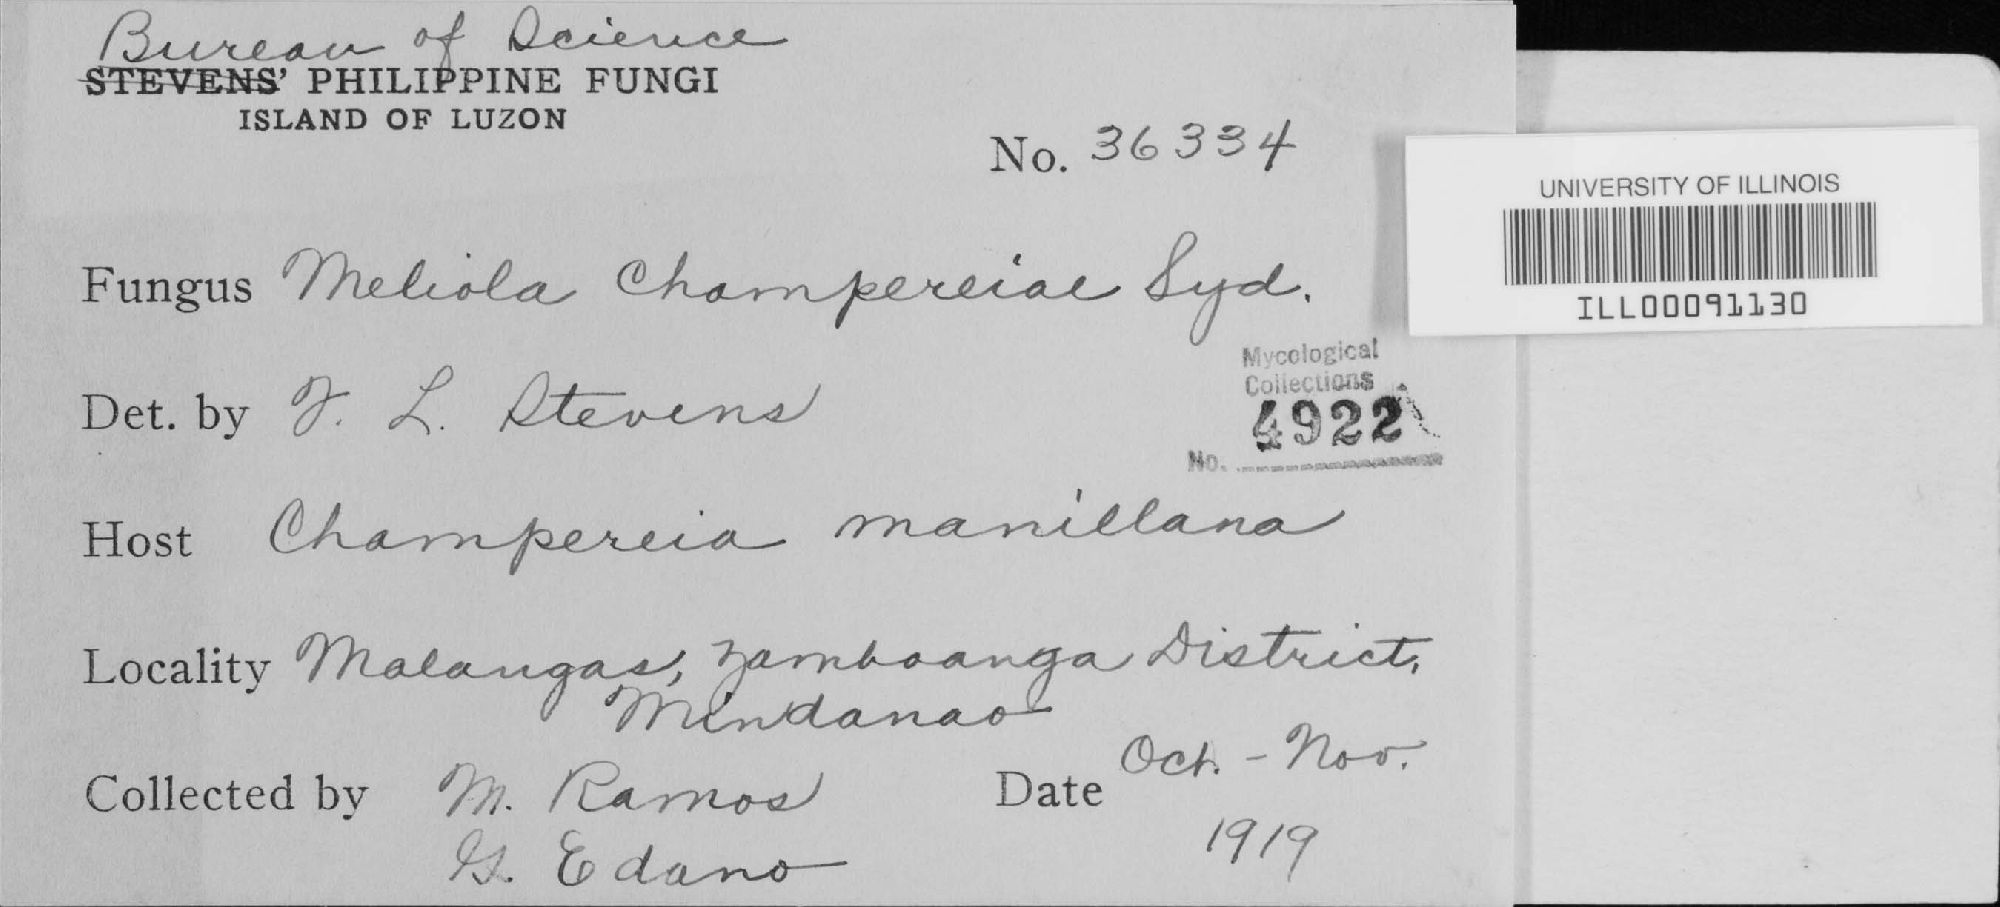 Bureau of Science
STEVENS' PHILIPPINE FUNGI
ISLAND OF LUZON
No. 36334
UNIVERSITY OF ILLINOIS
ILL00091130
Fungus Meliola Champereiae Syd.
Mycological
Collections
4922
No.
Det. by F. L. Stevens
Host Champereia manillana
Locality Malangas, Zamboanga District,
Mindanao
Collected by M. Ramos
G. Edano
Date Oct. - Nov.
1919